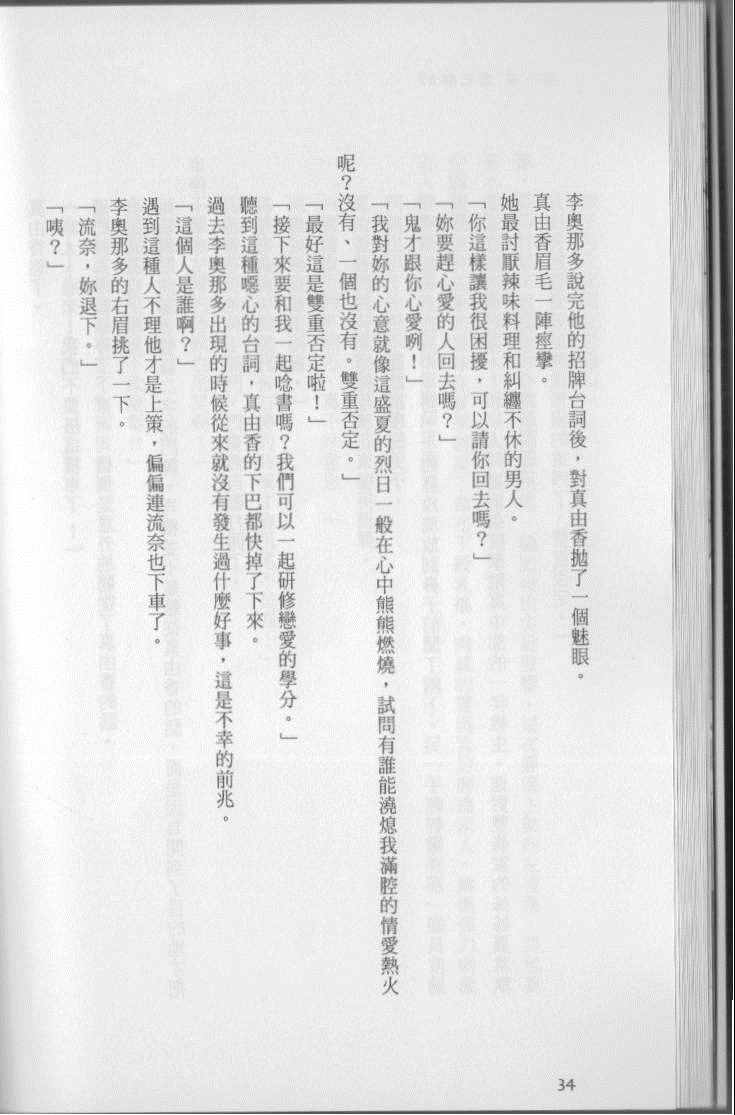 李奧那多說完他的招牌台詞後，對真由香拋了一個魅眼。
真由香眉毛一陣痙攣。
她最討厭辣味料理和糾纏不休的男人。
「你這樣讓我很困擾，可以請你回去嗎？」
「妳要趕心愛的人回去嗎？」
「鬼才跟你心愛咧！」
「我對妳的心意就像這盛夏的烈日一般在心中熊熊燃燒，試問有誰能澆熄我滿腔的情愛熱火
呢？沒有、一個也沒有。雙重否定。」
「最好這是雙重否定啦！」
「接下來要和我一起唸書嗎？我們可以一起研修戀愛的學分。」
聽到這種噁心的台詞，真由香的下巴都快掉了下來。
過去李奧那多出現的時候從來就沒有發生過什麼好事，這是不幸的前兆。
「這個人是誰啊？」
遇到這種人不理他才是上策，偏偏連流奈也下車了。
李奧那多的右眉挑了一下。
「流奈，妳退下。」
「咦？」
34